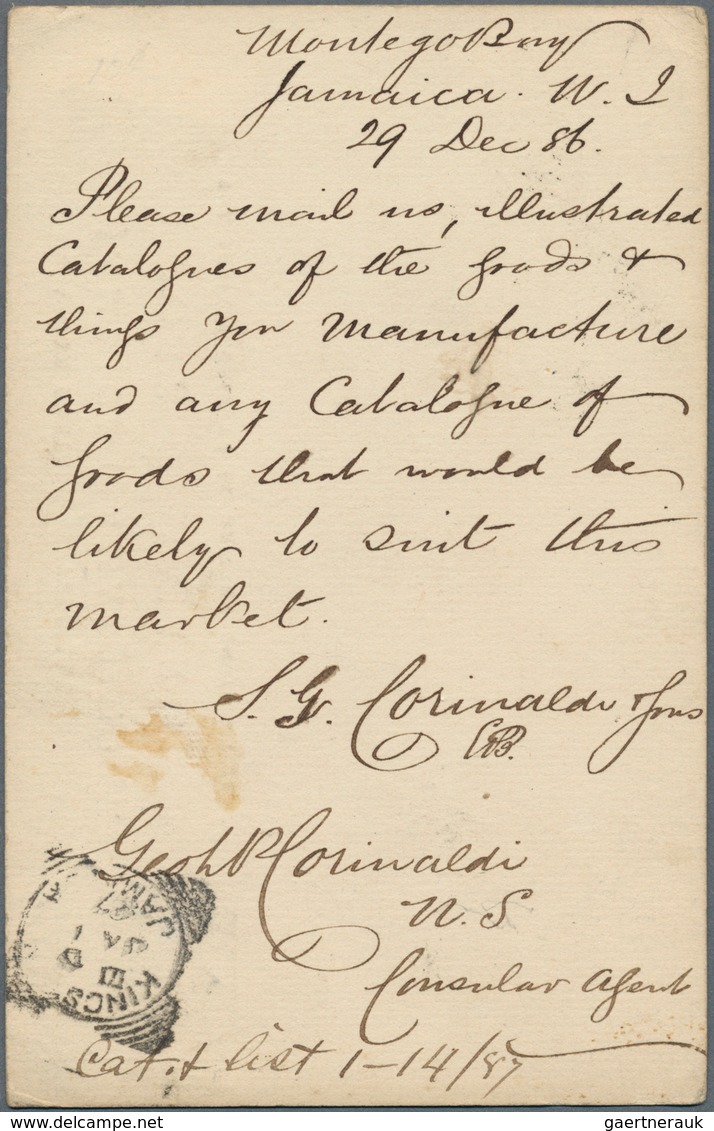 Montego Bay
Jamaica. W. I
29 Dec 86.
Please mail us, illustrated
Catalogues of the goods &
things you manufacture
and any Catalogue of
goods that would be
likely to suit this
market.
S. G. Corinaldi & Sons
Geo L P Corinaldi
U. S
Consular Agent
KINGS
D
JA
87
JAM
Cat. & list 1-14/87
gaertnerauk